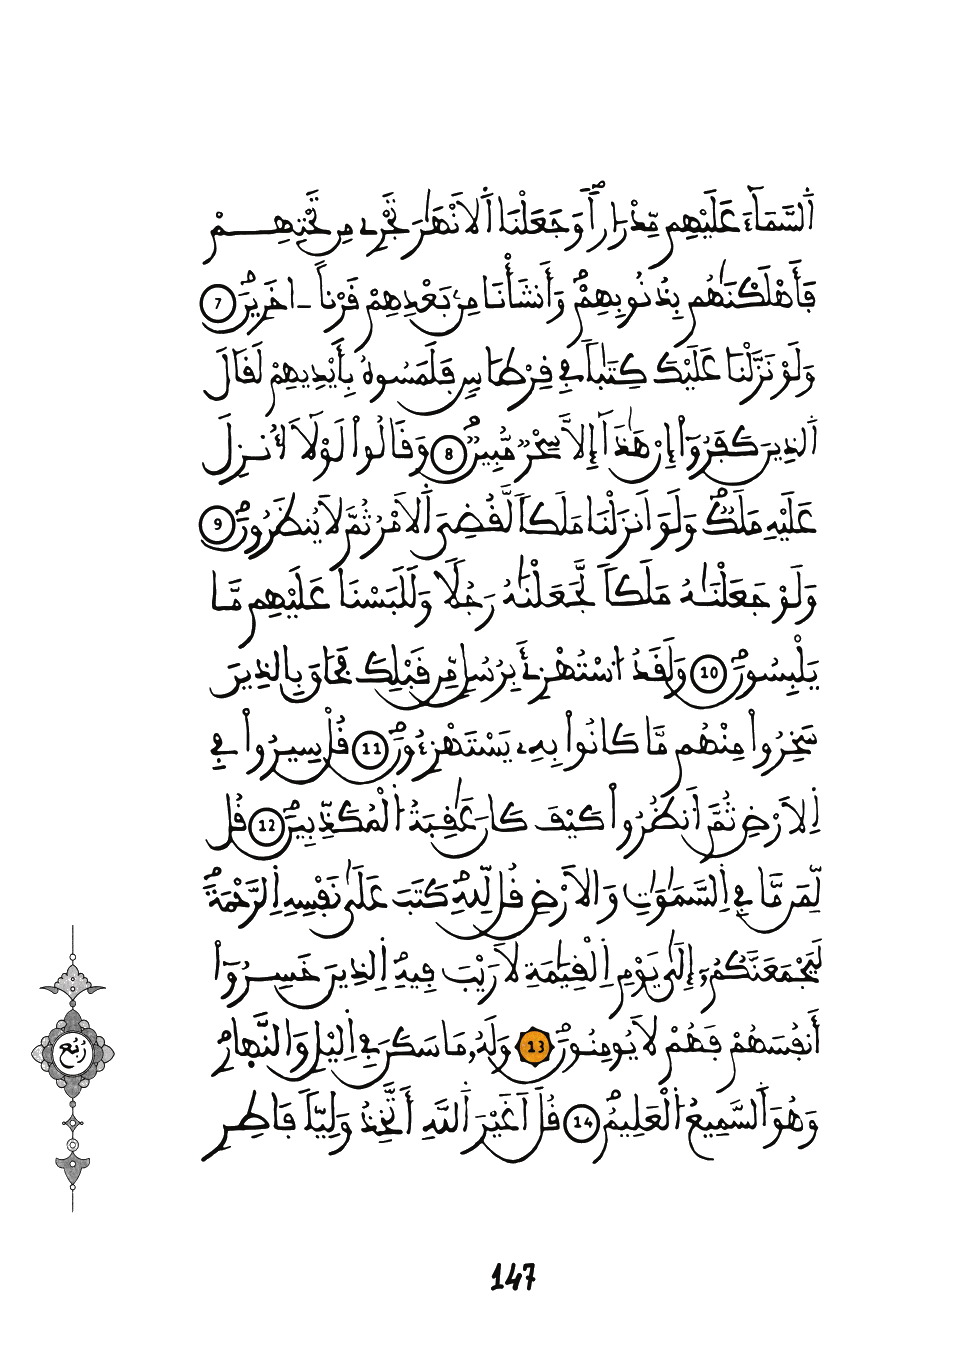 اَ۬لسَّمَآءَ عَلَيْهِم مِّدْرَاراٗ وَجَعَلْنَا اَ۬لَانْهَٰرَ تَجْرِے مِن تَحْتِهِمْ
فَأَهْلَكْنَٰهُم بِذُنُوبِهِمْ وَأَنشَأْنَا مِنۢ بَعْدِهِمْ قَرْناً ـ اخَرِينَ 7
وَلَوْ نَزَّلْنَا عَلَيْكَ كِتَٰباٗ فِے قِرْطَاسٖ فَلَمَسُوهُ بِأَيْدِيهِمْ لَقَالَ
اَ۬لذِينَ كَفَرُوٓاْ إِنْ هَٰذَآ إِلَّا سِحْرٞ مُّبِينٞ 8 وَقَالُواْ لَوْلَآ أُنزِلَ
عَلَيْهِ مَلَكٞ وَلَوَ اَنزَلْنَا مَلَكاٗ لَّقُضِيَ اَ۬لَامْرُ ثُمَّ لَا يُنظَرُونَ 9
وَلَوْ جَعَلْنَٰهُ مَلَكاٗ لَّجَعَلْنَٰهُ رَجُلاٗ وَلَلَبَسْنَا عَلَيْهِم مَّا
يَلْبِسُونَ 10 وَلَقَدُ اُ۟سْتُهْزِئَ بِرُسُلٖ مِّن قَبْلِكَ فَحَاقَ بِالذِينَ
سَخِرُواْ مِنْهُم مَّا كَانُواْ بِهِۦ يَسْتَهْزِءُونَ 11 قُلْ سِيرُواْ فِے
اِ۬لَارْضِ ثُمَّ اَ۟نظُرُواْ كَيْفَ كَانَ عَٰقِبَةُ اُ۬لْمُكَذِّبِينَ 12 قُل
لِّمَن مَّا فِے اِ۬لسَّمَٰوَٰتِ وَالَارْضِ قُل لِّلهِ كَتَبَ عَلَىٰ نَفْسِهِ اِ۬لرَّحْمَةَ
لَيَجْمَعَنَّكُمُۥٓ إِلَىٰ يَوْمِ اِ۬لْقِيَٰمَةِ لَا رَيْبَ فِيهِ اِ۬لذِينَ خَسِرُوٓاْ
أَنفُسَهُمْ فَهُمْ لَا يُومِنُونَ 13 وَلَهُۥ مَا سَكَنَ فِے اِ۬ليْلِ وَالنَّهارِ
وَهُوَ اَ۬لسَّمِيعُ اُ۬لْعَلِيمُ 14 قُلَ اَغَيْرَ اَ۬للَّهِ أَتَّخِذُ وَلِيّاٗ فَاطِرِ
رُبُع
147